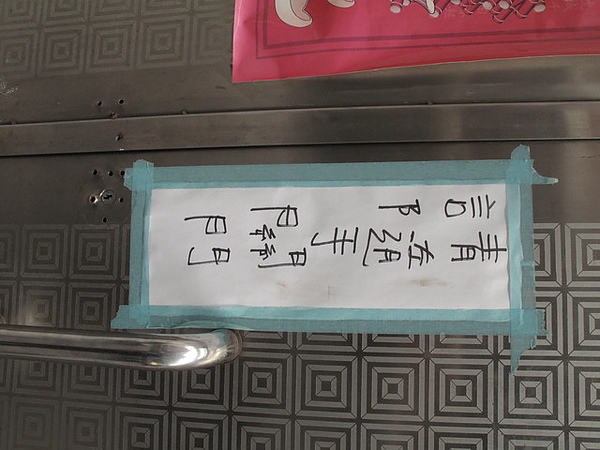 請隨手關門